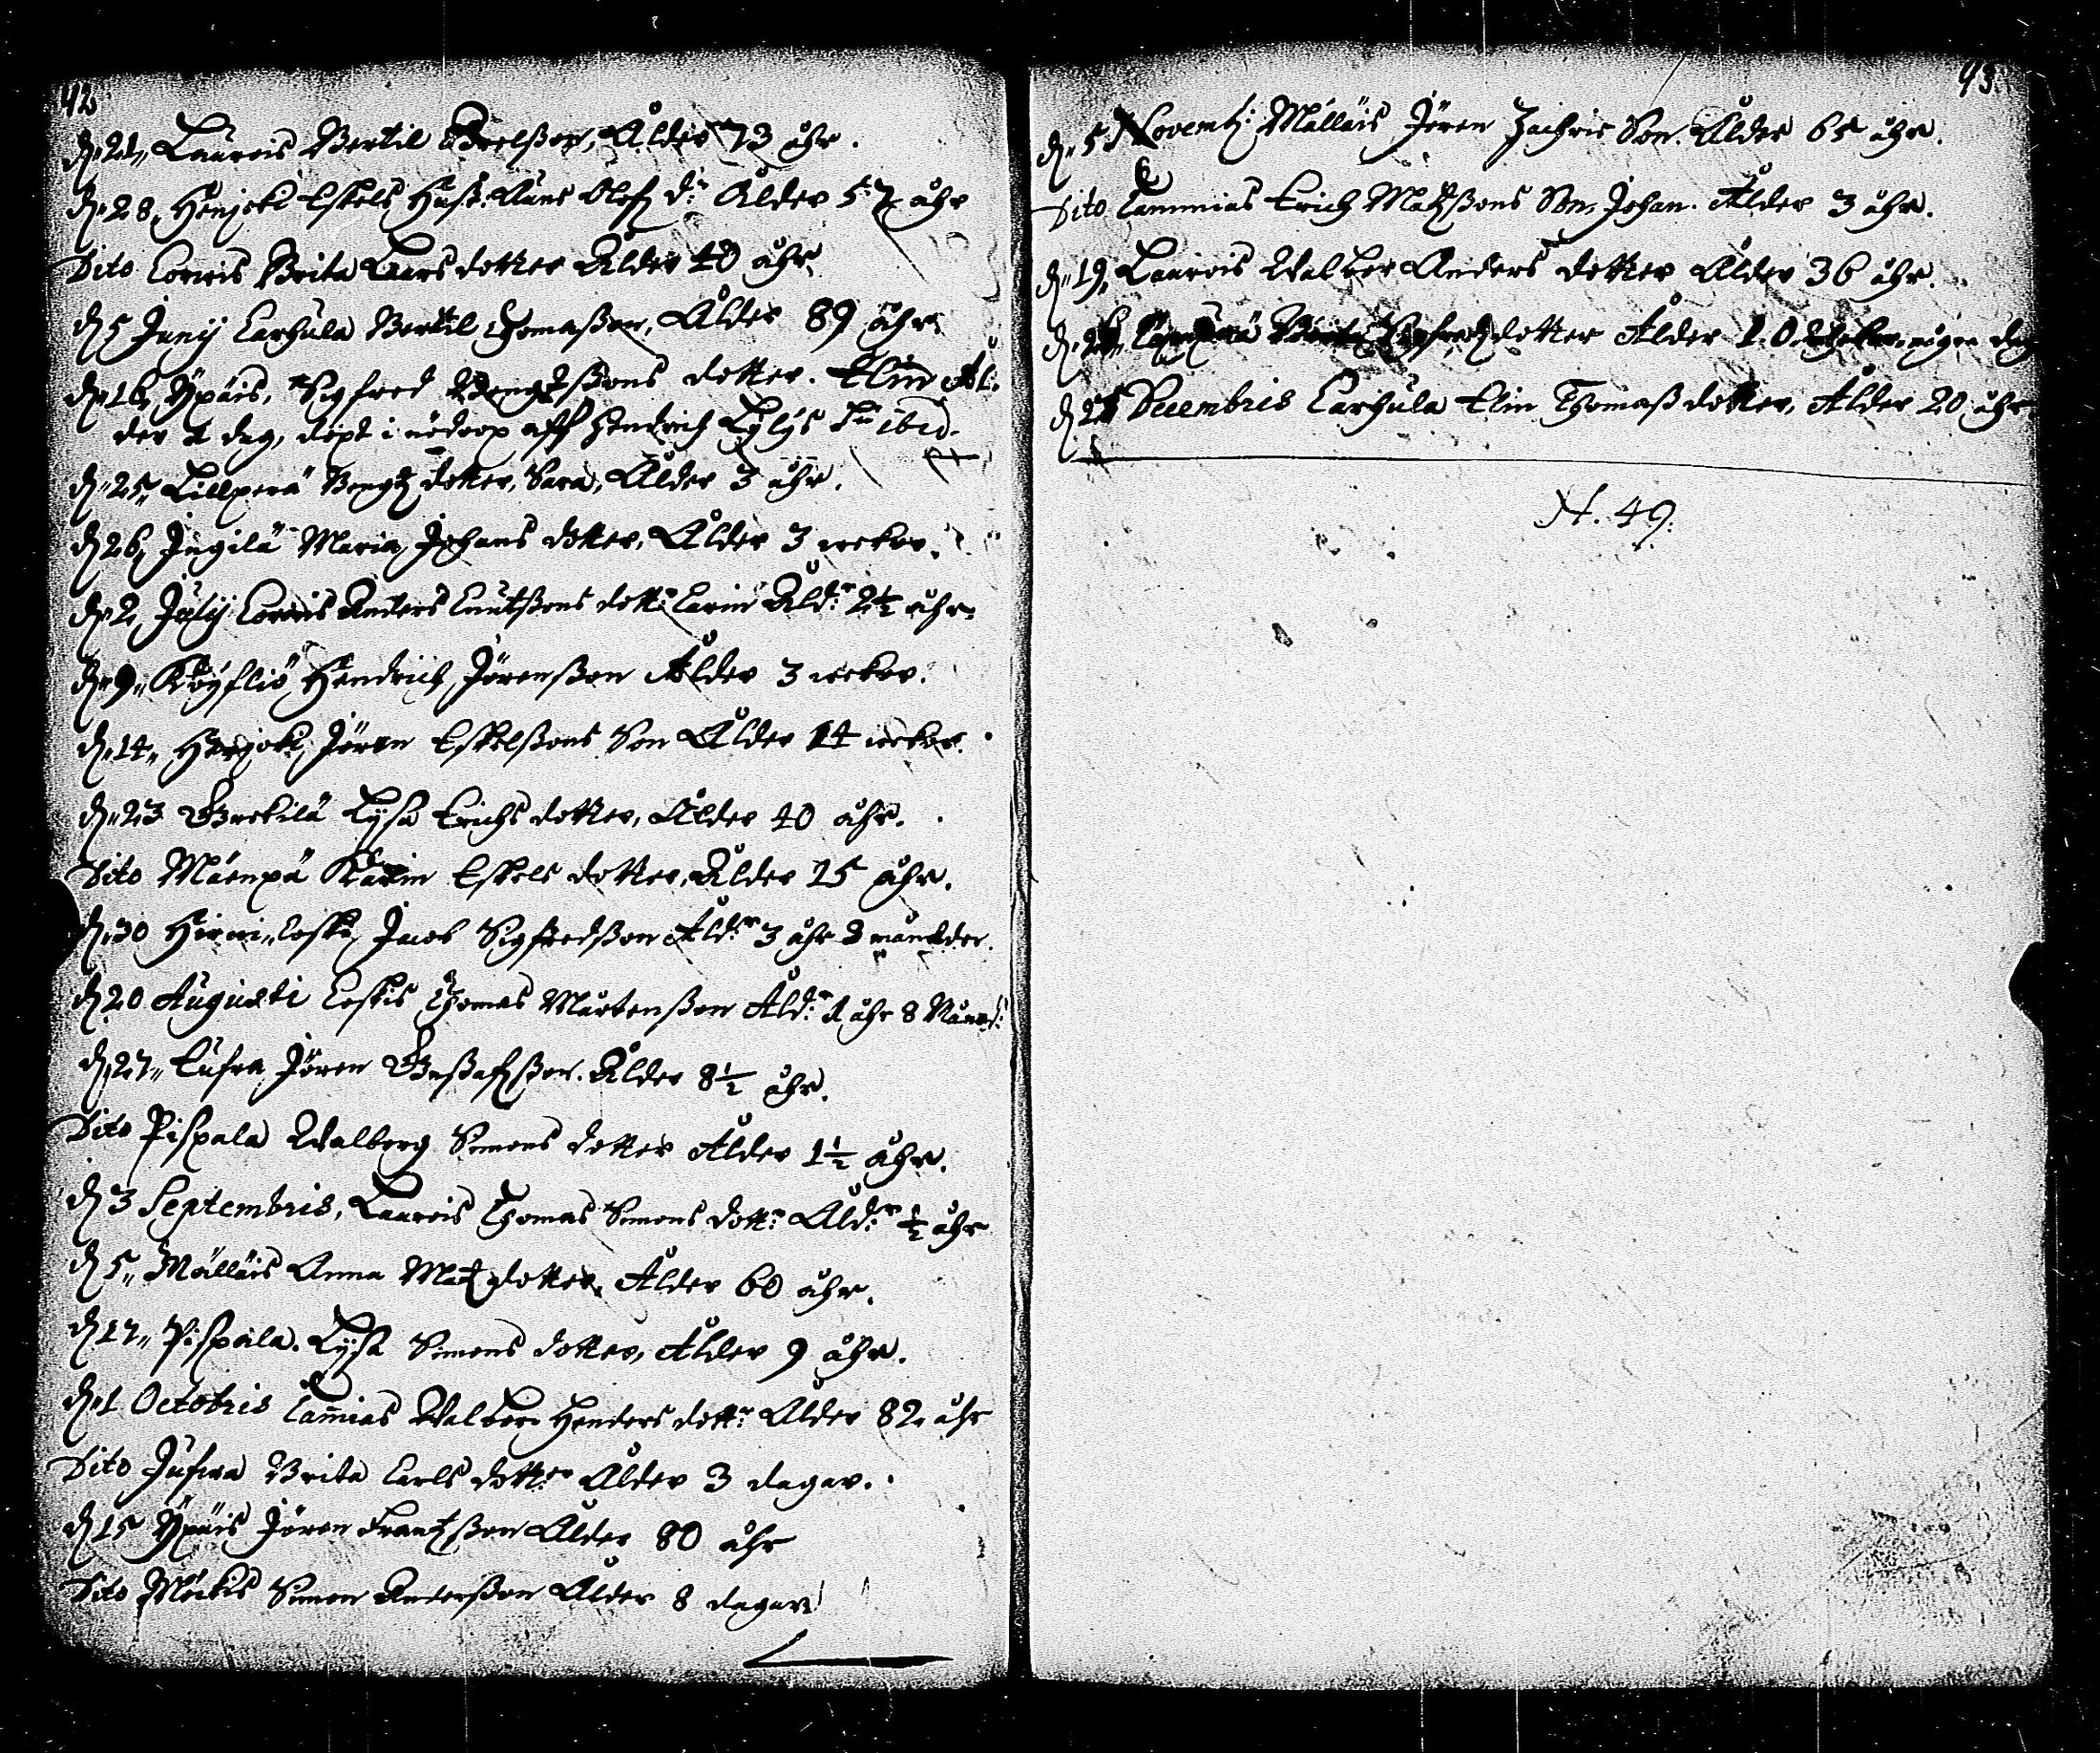 42
d. 21, Laurois Bertil Brelßon, Ålder 73 åhr.
d. 28, Henjoki Eskels Hust: Olof dr Ålder 57 åhr
Dito Corvis Brita Lars dotter Ålder 40 åhr,
d 5 Junij Carhula Bertil Thomaßon, Ålder 89 åhr.
d. 16, Ypäis, Sigfred Bengtßons dotter. Elin Ål:
der 1 dag, döpt i nödop aff Hendrich ibid.
d. 25, Lillperä Bengtz dotter, Sara, Ålder 3 åhr.
d 26, Jngilä Maria, Johans dotter, Ålder 3 wekor.
d. 2, Julij Corvis Anders Cnutßons dottr Carin Åldr 2½ åhr.
d. 9, Köyliö, Hendrich Jörenßon Ålder 3 wekor.
d. 14, Henjoki, Jören Eskelßons Son Ålder 14 wekor.
d. 23 Lysa Erichs dotter, Ålder 40 åhr.
Dito Mäenpä Karin Eskels dotter, Ålder 25 åhr.
d. 30 Jacob Sigfredßon Åldr 3 åhr 3 månader.
d 20 Augusti Coskis Thomas Mårtenßon Åldr 1 åhr 8 Månad:
d. 27, Jören Gustafßon. Ålder 8½ åhr.
Dito Pispala Walborg Simons dotter Ålder 1½ åhr.
d 3 Septembris, Laurois Thomas Simons dottr Åldr ½ åhr
d 5, Mälläis Anna Matz dotter, Ålder 60 åhr.
d 17, Pispala. Lysa Simons dotter, Ålder 9 åhr.
d. 1 Octobris Cam̄ias Walbor Henders dottr Ålder 82 åhr
Dito Jufwa Brita Carls dotter Ålder 3 dagar.
d 15 Ypäis Jören Frantzßon Ålder 80 åhr
Dito Simon Anderßon Ålder 8 dagar
43
d. 5 Novemb: Mälläis Jören Zachris Son. Ålder 65 åhr.
Dito Cammias Erich Matzßons Son, Johan. Ålder 3 åhr.
d. 19, Laurois Walbor Anders dotter Ålder 36 åhr.
d. dotter Ålder någon dag
d 25 Decembris Carhula Elin Thomaß dotter, Ålder 20 åhr
N. 49.